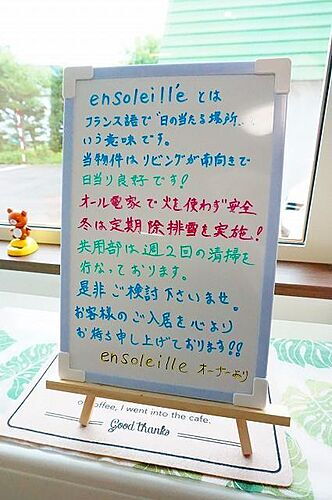 ensoleillé とは
フランス語で「日の当たる場所...
いう意味です。
当物件はリビングが南向きで
日当り良好です!
オール電家で火を使わず安全
冬は定期除排雪を実施!
共用部は週2回の清掃を
行なっております。
是非ご検討下さいませ。
お客様のご入居を心より
お待ち申し上げております!!
ensoleille オーナーより
coffee, I went into the cafe.
Good thanks